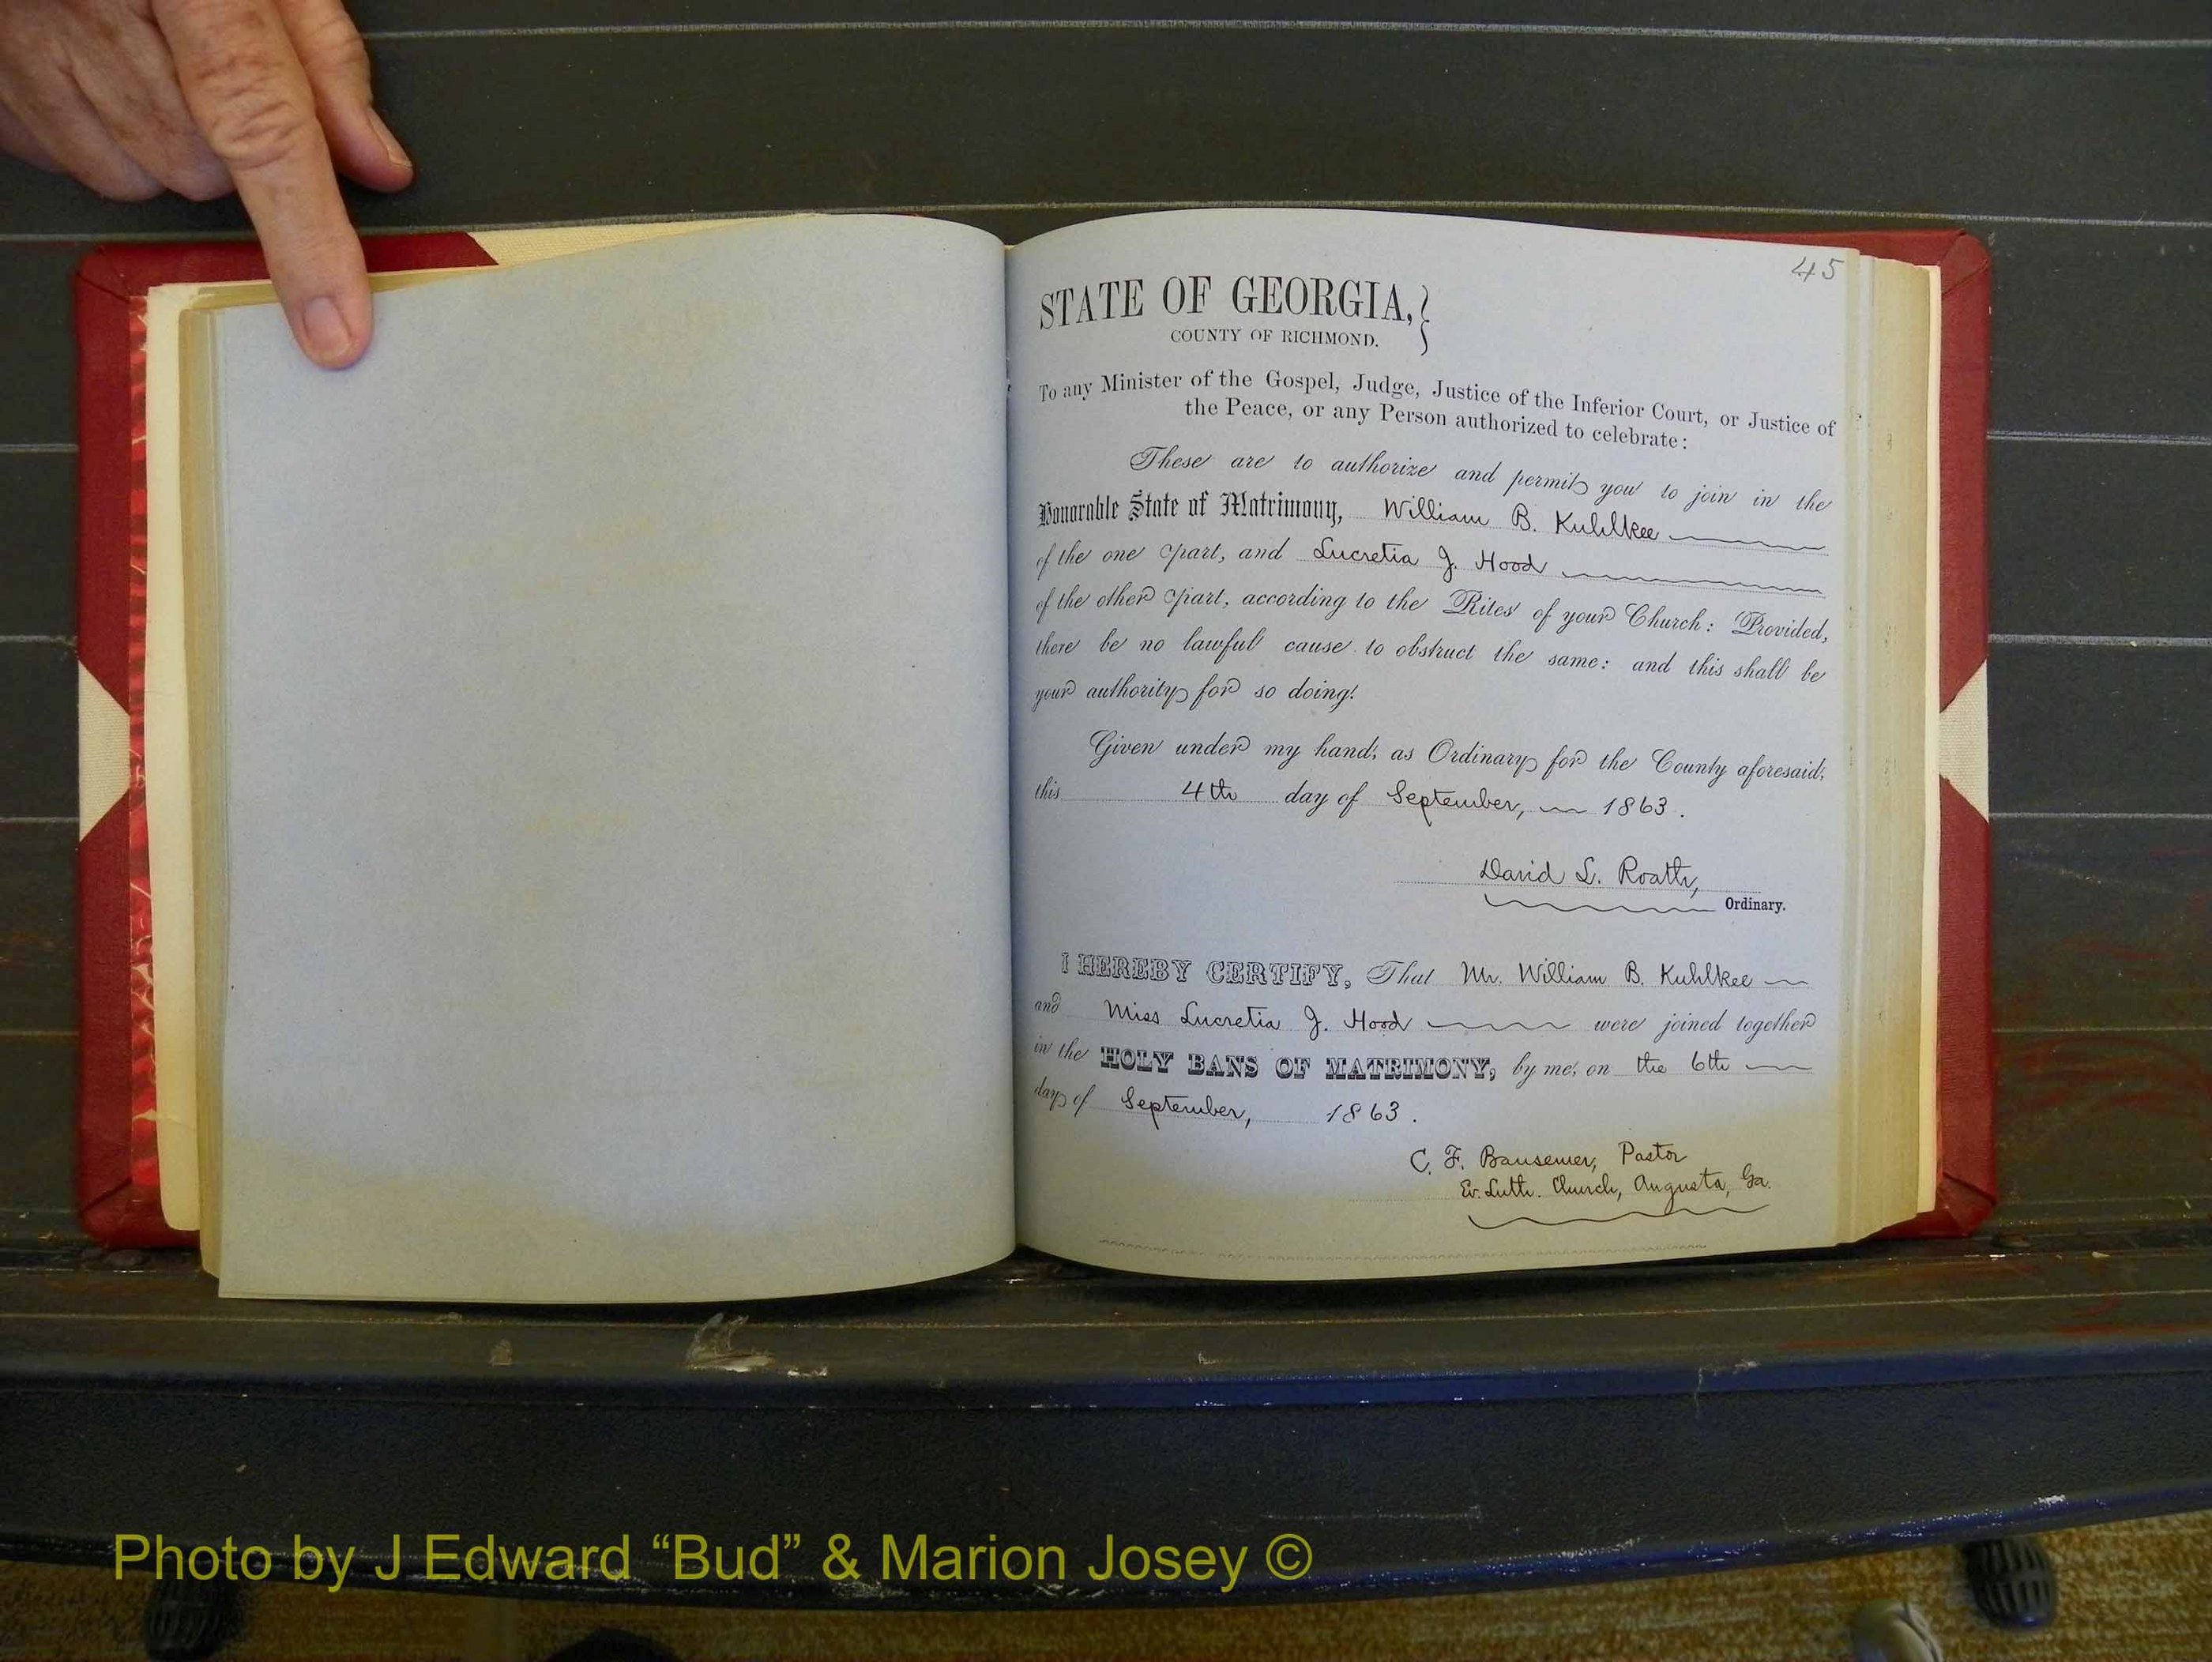 45
STATE OF GEORGIA,
COUNTY OF RICHMOND.
To any Minister of the Gospel, Judge, Justice of the Inferior Court, or Justice of
the Peace, or any Person authorized to celebrate:
These are to authorize and permit you to join in the
Honorable State of Matrimony, William B. Kuhlkee
of the one part, and Lucretia J. Hood
of the other part, according to the Rites of your Church: Provided,
there be no lawful cause to obstruct the same: and this shall be
your authority for so doing.
Given under my hand, as Ordinary for the County aforesaid,
this 4th day of September, 1863.
David L. Roath,
Ordinary.
I HEREBY CERTIFY, That Mr. William B. Kuhlkee
and Miss Lucretia J. Hood were joined together
in the HOLY BANS OF MATRIMONY, by me, on the 6th
day of September, 1863.
C. F. Bansemer, Pastor
Ev. Luth. Church, Augusta, Ga.
Photo by J Edward “Bud” & Marion Josey ©